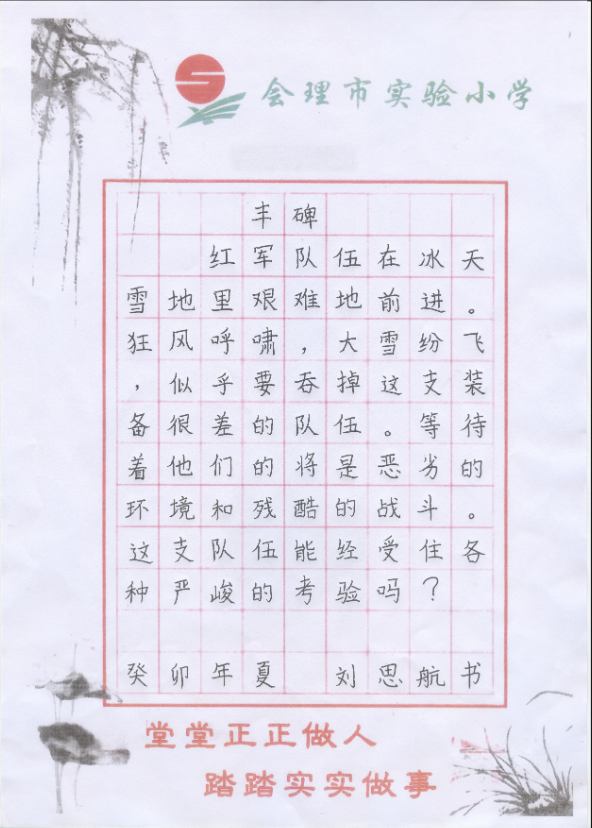 会理市实验小学
丰碑
红军队伍在冰天
雪地里艰难地前进。
狂风呼啸，大雪纷飞
，似乎要吞掉这支装
备很差的队伍。等待
着他们的将是恶劣的
环境和残酷的战斗。
这支队伍能经受住各
种严峻的考验吗？
癸卯年夏 刘思航书
堂堂正正做人
踏踏实实做事